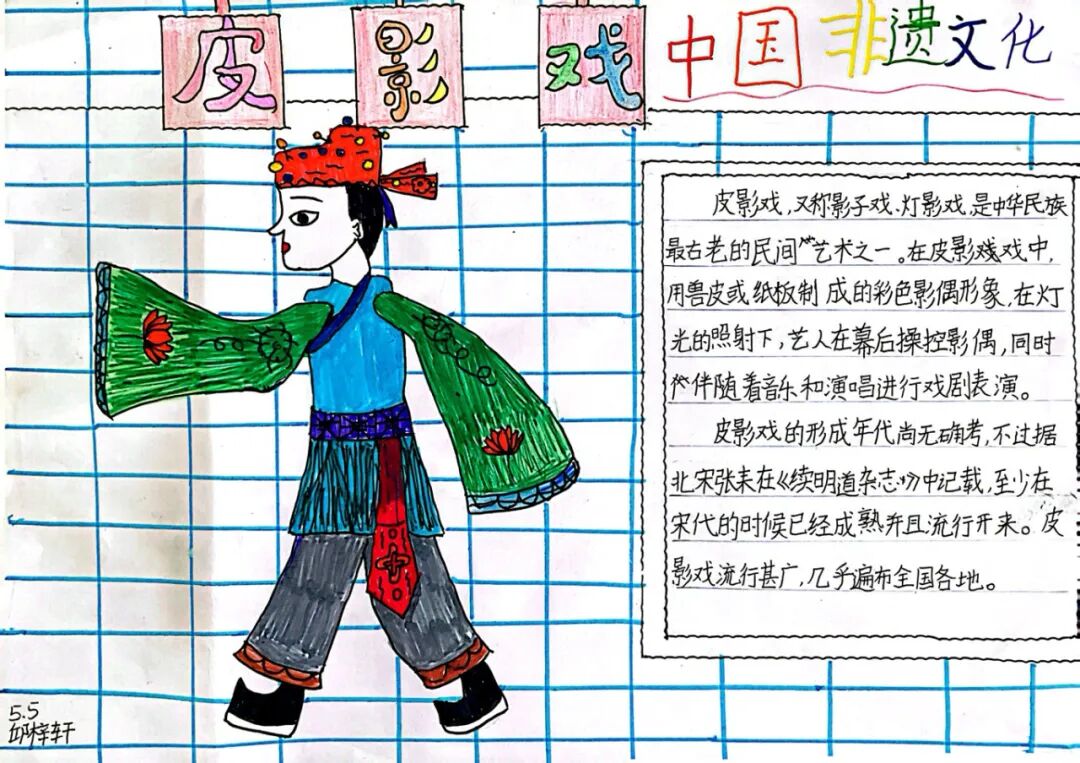 皮影戏
中国非遗文化
皮影戏，又称影子戏、灯影戏，是中华民族
最古老的民间艺术之一。在皮影戏戏中，
用兽皮或纸板制成的彩色影偶形象，在灯
光的照射下，艺人在幕后操控影偶，同时
伴随着音乐和演唱进行戏剧表演。
皮影戏的形成年代尚无确考，不过据
北宋张耒在《续明道杂志》中记载，至少在
宋代的时候已经成熟并且流行开来。皮
影戏流行甚广，几乎遍布全国各地。
5.5
邱梓轩